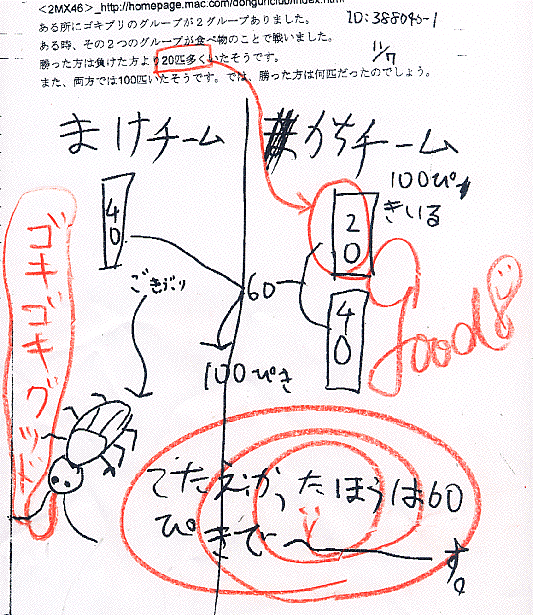 <2MX46>_http://homepage.mac.com/donguriclub/index.html
ID:388040-1
11/7
ある所にゴキブリのグループが２グループありました。
ある時、その２つのグループが食べ物のことで戦いました。
勝った方は負けた方より20匹多くいたそうです。
また、両方では100匹いたそうです。では、勝った方は何匹だったのでしょう。
まけチーム
かちチーム
100ぴ
きいる
40
20
ごきぶり
60
40
100ぴき
good
ゴキゴキグット
こたえかったほうは60
ぴきで〜す。